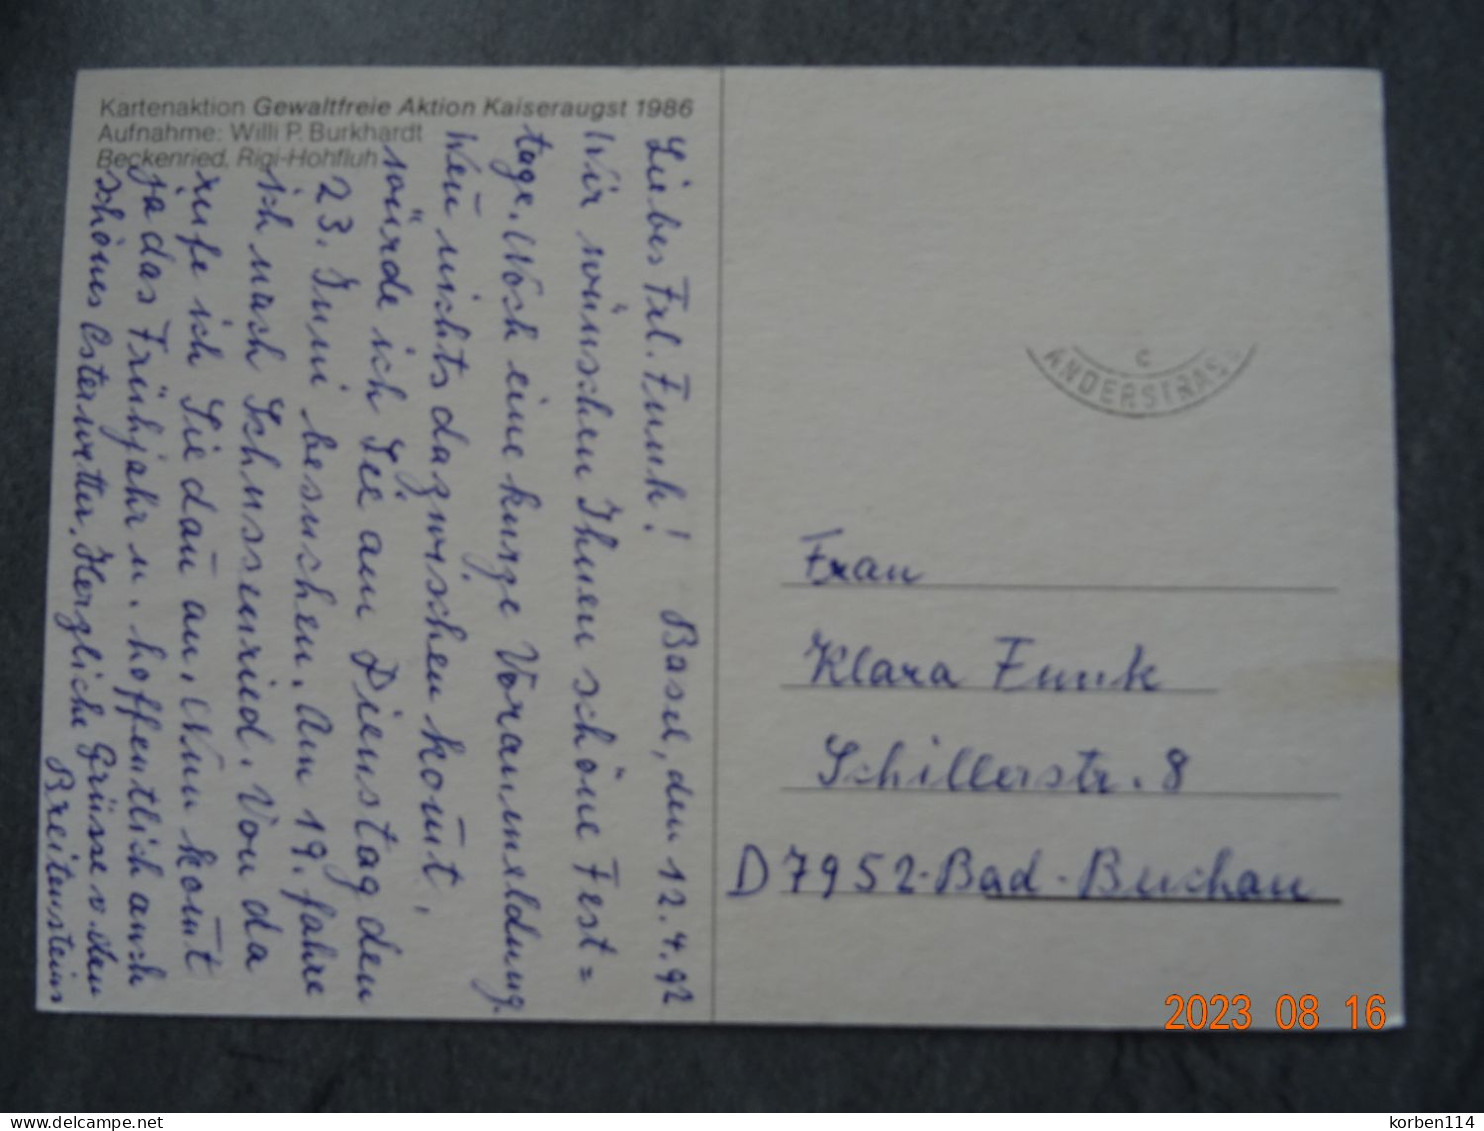 Kartenaktion Gewaltfreie Aktion Kaiseraugst 1986
Aufnahme: Willi P. Burkhardt
Beckenried, Rigi-Hohfluh
Liebes Frl. Funk! Basel, den 12.4.92
Wir wünschen Ihnen schöne Fest=
tage. Noch eine kurze Voranmeldung.
Weñ nichts dazwischen kom̄t,
würde ich Sie am Dienstag den
23. Juni besuchen. Am 19. fahre
ich nach Schussenried. Von da
rufe ich Sie dañ an. Nun kom̄t
ja das Frühjahr u. hoffentlich auch
schönes Osterwetter. Herzliche Grüsse v. den
Breitensteins
C
ANDERSTRASS
Frau
Klara Funk
Schillerstr. 8
D 7952-Bad-Buchau
2023 08 16
delcampe.net
korben114